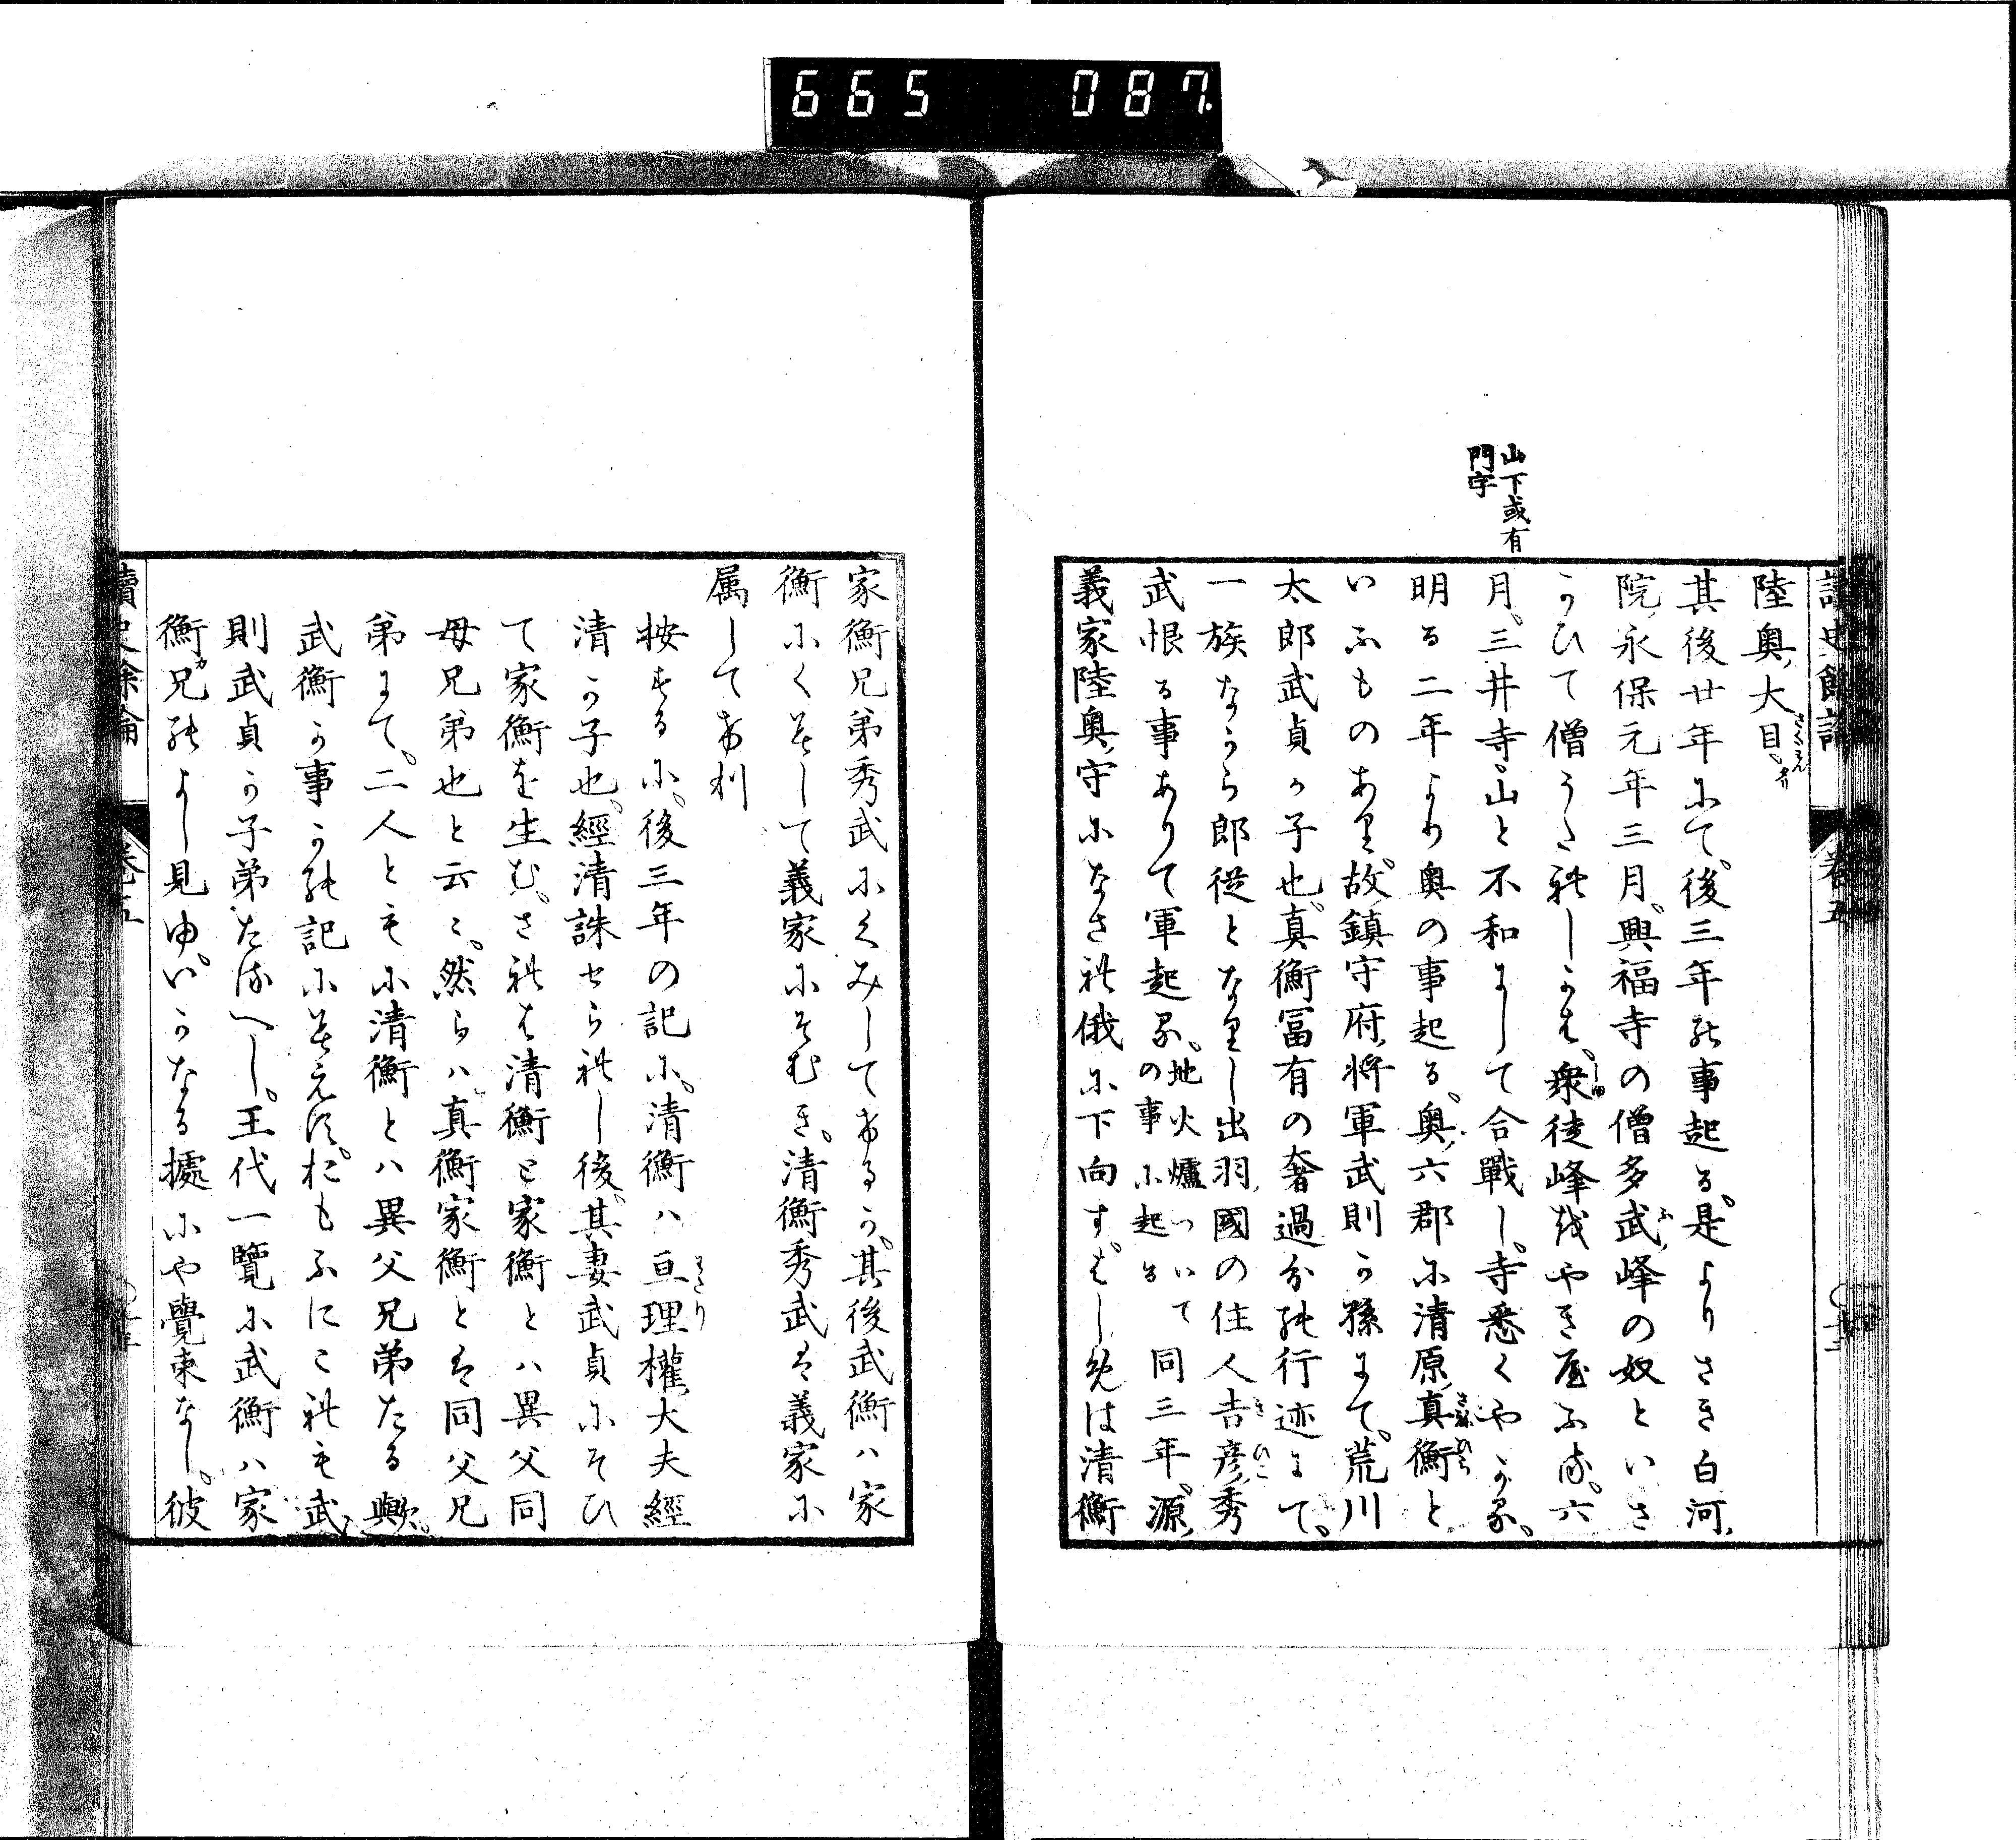 665 087
讀史餘論 卷五
山下或有
門字
陸奥ノ大目
さくわん
其後廿年にて後三年の事起る是よりさき白河ノ
院ノ永保元年三月興福寺の僧多武ノ峰の奴といさ
かひて僧うたれしかは衆徒峰をやき屋ふる六
月三井寺山と不和にして合戰し寺悉くやかる
明る二年より奥の事起る奥ノ六郡に清原ノ真衡と
いふものあり故ノ鎮守府ノ将軍武則か孫にて荒川
太郎武貞か子也真衡冨有の奢過分の行迹にて
一族なから郎従となりし出羽ノ國の住人吉彦ノ秀
武恨る事ありて軍起る地火爐ついての事に起る同三年源ノ
義家陸奥ノ守になされ俄に下向すはしめは清衡
家衡兄弟秀武にくみしてけるか其後武衡ハ家
衡にくみして義家にそむき清衡秀武は義家に
属してけり
按するに後三年の記に清衡ハ亘理ノ權ノ大夫經
わたり
清か子也經清誅せられし後其妻武貞にそひ
て家衡を生むされは清衡と家衡とハ異父同
母兄弟也と云々然らハ真衡家衡とは同父兄
弟にて二人ともに清衡とハ異父兄弟たる歟
武衡か事かの記に見えすおもふにこれも武
則武貞か子弟たるへし王代一覽に武衡ハ家
衡カ兄のよし見ゆいかなる據にや覺束なし彼
讀史餘論 卷五